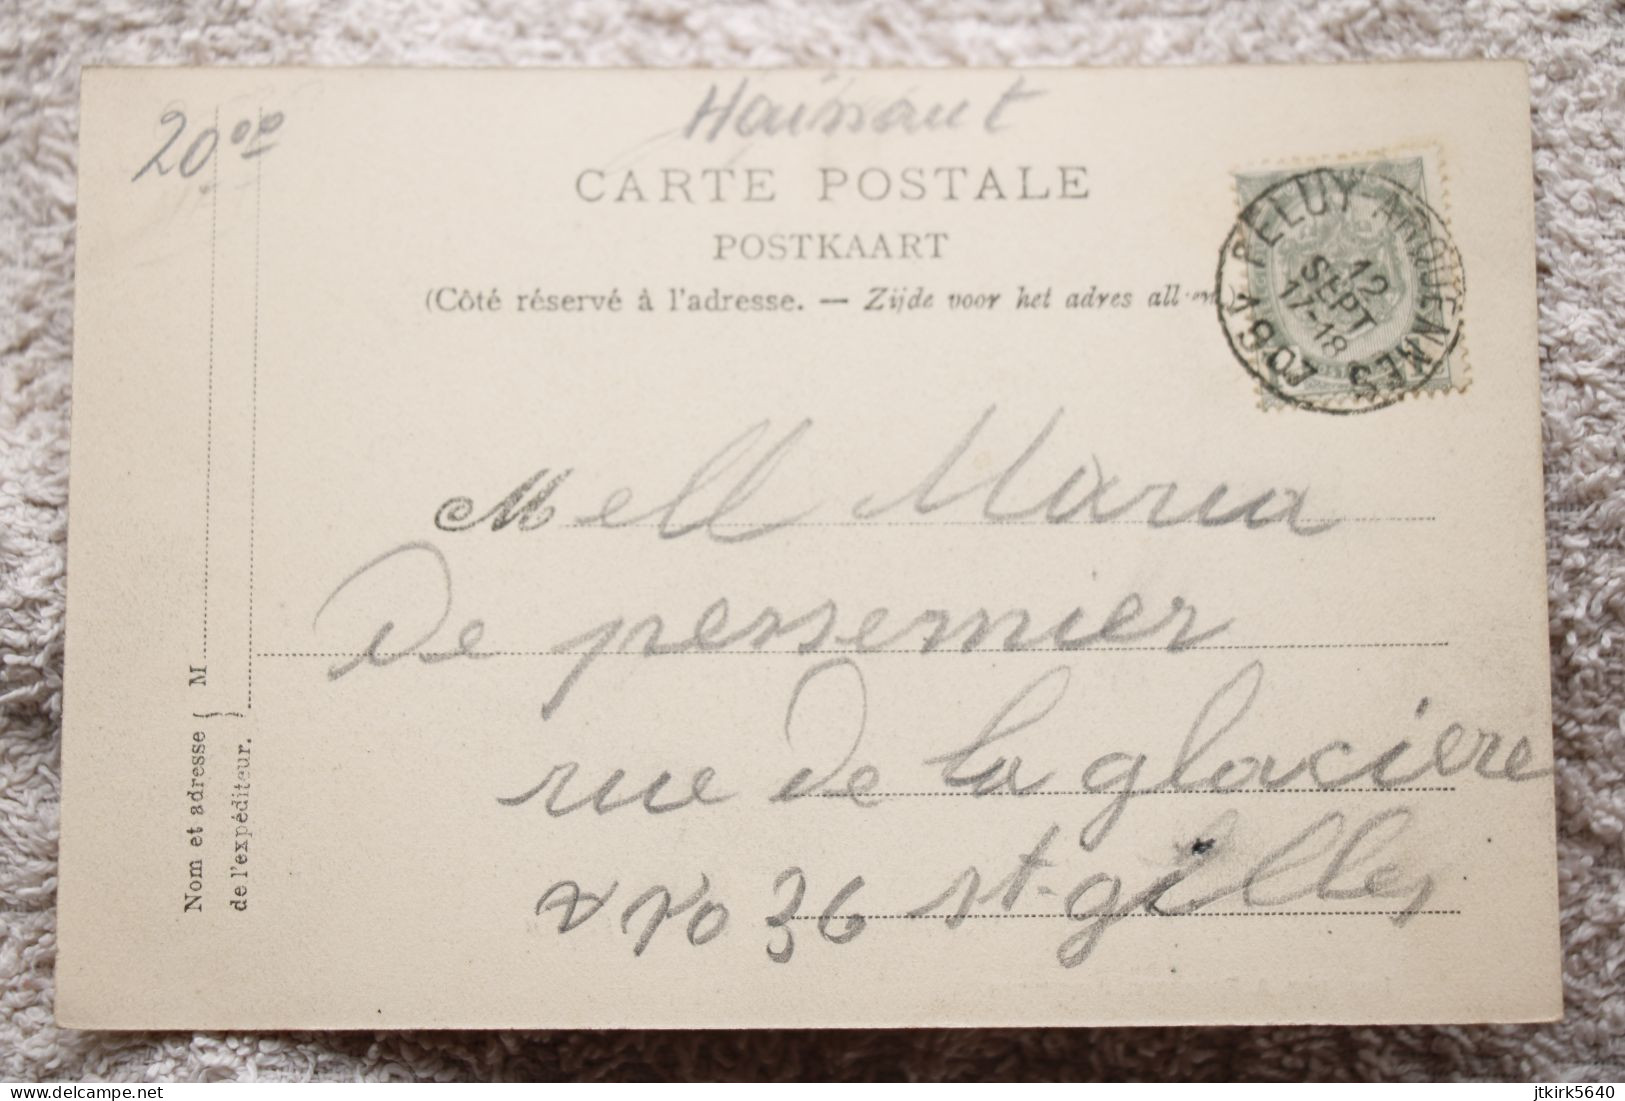 Hainaut
20 00
CARTE POSTALE
POSTKAART
(Côté réservé à l'adresse. — Zijde voor het adres
FELUY-ARQUENNES
12
SEPT
17-18
1907
Mell Maria
De persemier
rue De la glaciere
No 36 st-gilles
Nom et adresse { M
de l'expéditeur. }
delcampe.net
jtkirk5640